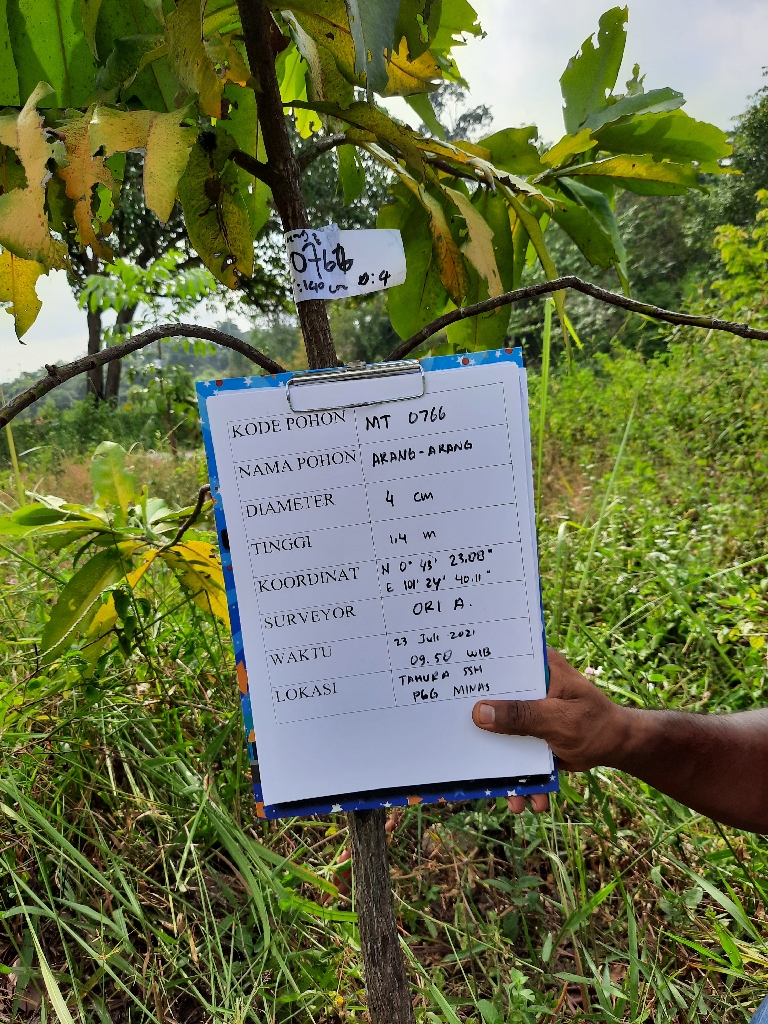 0766
140 cm D:4
KODE POHON MT 0766
NAMA POHON ARANG-ARANG
DIAMETER 4 cm
TINGGI 1.4 m
KOORDINAT N 0° 43' 23.08"
E 101° 24' 40.11"
SURVEYOR ORI A.
WAKTU 23 Juli 2021
09.50 WIB
LOKASI TAHURA SSH
PBG MINAS